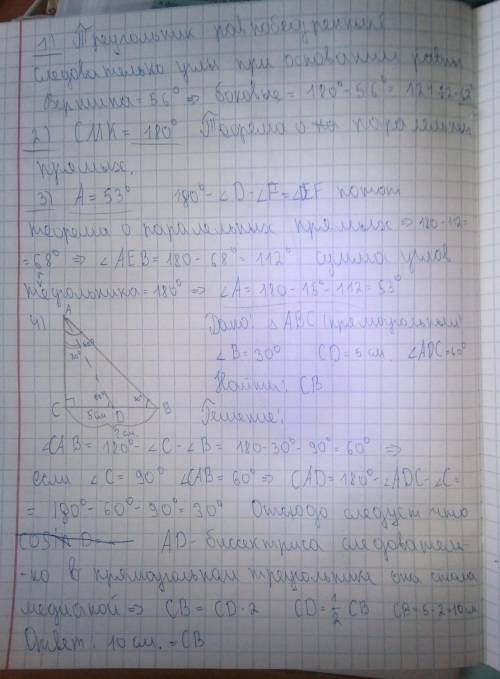 1) Треугольник равнобедренный
следовательно углы при основании равны
Вершина = 56° ⇒ боковые = 180° - 56° =
2) СМК = 180° Теорема о паралельных
прямых.
3) А = 53° 180° - ∠D - ∠F = ∠DEF
теорема о паралельных прямых ⇒ 180 - 112 =
= 68° ⇒ ∠AEB = 180 - 68° = 112° сумма углов
треугольника = 180° ⇒ ∠A = 180 - 15° - 112 = 53°
4) A Дано: △ABC (прямоугольный)
60° 30° ∠B = 30° CD = 5 см. ∠ADC = 60°
Найти: CB
C 5см D B 60° 30° ? см Решение:
∠CAB = 180° - ∠C - ∠B = 180 - 30° - 90° = 60° ⇒
если ∠C = 90° ∠CAB = 60° ⇒ CAD = 180° - ∠ADC - ∠C =
= 180° - 60° - 90° = 30° Отсюдо следует что
AD - биссектриса следователь-
-но в прямоугольном треугольнике она
медианой ⇒ CB = CD · 2 CD = 1/2 CB CB = 5 · 2 = 10 см
Ответ: 10 см. = CB